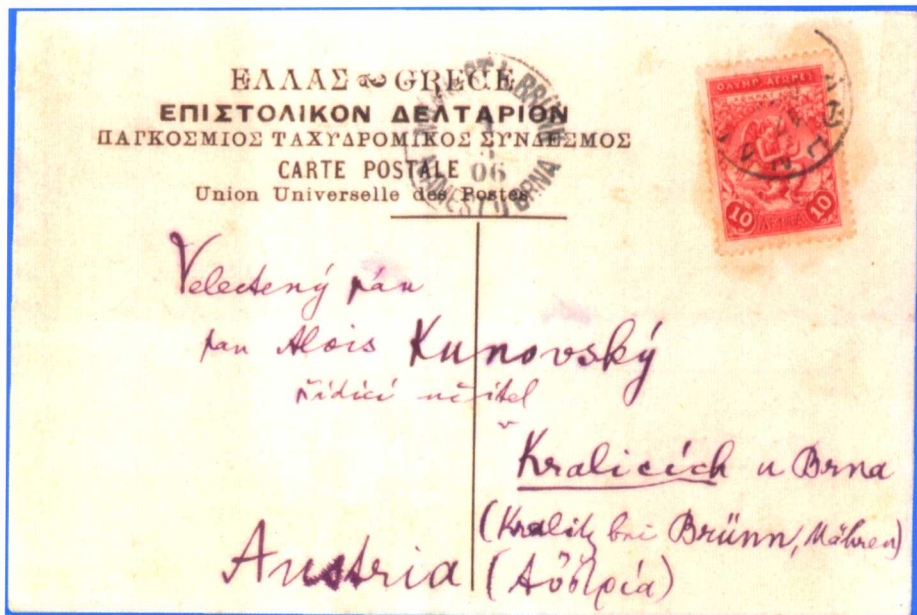 ΕΛΛΑΣ GRECE
ΕΠΙΣΤΟΛΙΚΟΝ ΔΕΛΤΑΡΙΟΝ
ΠΑΓΚΟΣΜΙΟΣ ΤΑΧΥΔΡΟΜΙΚΟΣ ΣΥΝΔΕΣΜΟΣ
CARTE POSTALE
Union Universelle des Postes
06
U BRNA
10 ΛΕΠΤΑ 10
Velectený pán
pan Alois Kunovský
řídící učitel
v
Kralicích u Brna
(Kralitz bei Brünn, Mähren)
Austria (Αὐστρία)